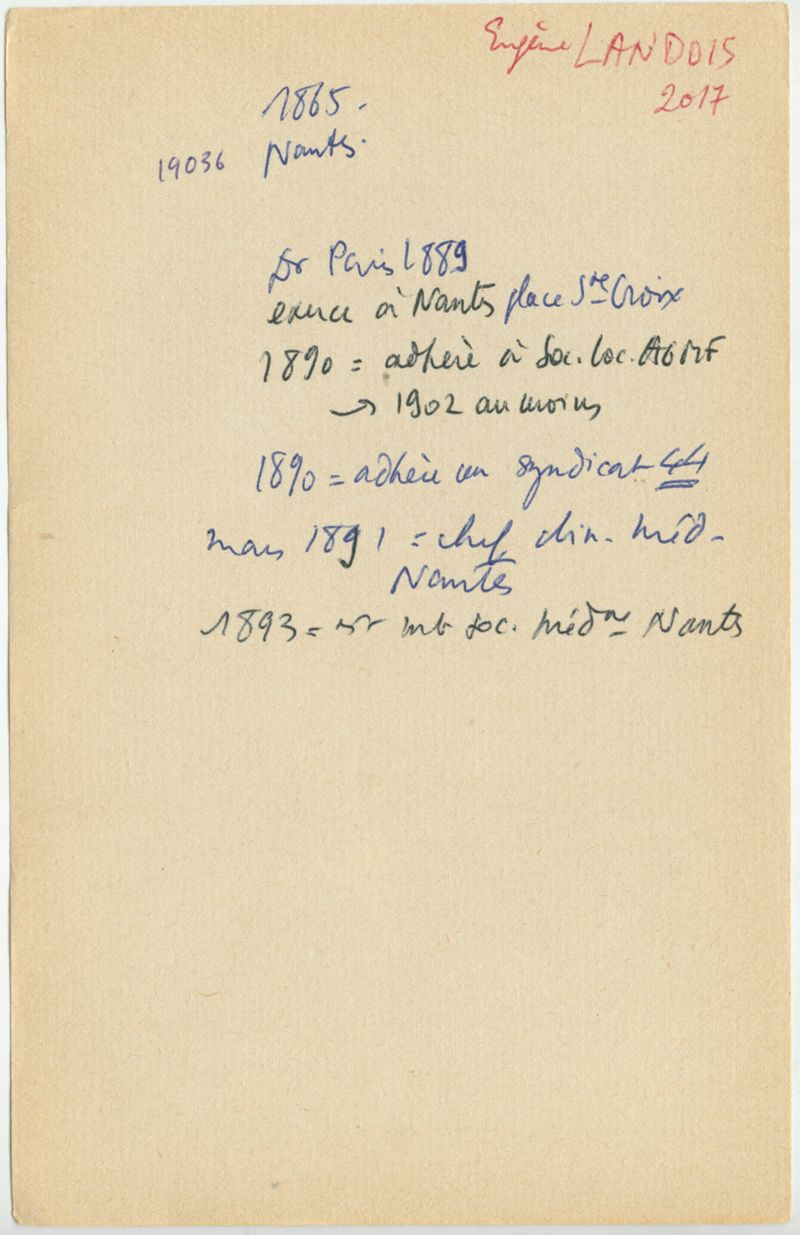 Eugène LANDOIS
2017
1865.
19036 Nantes.
Dr Paris 1889
exerce à Nantes place Ste Croix
1890 = adhère à Soc. loc. AGMF
→ 1902 au moins
1890 = adhère au syndicat 44
mars 1891 = chef clin. méd.
Nantes
1893 = est mb soc. médne Nantes